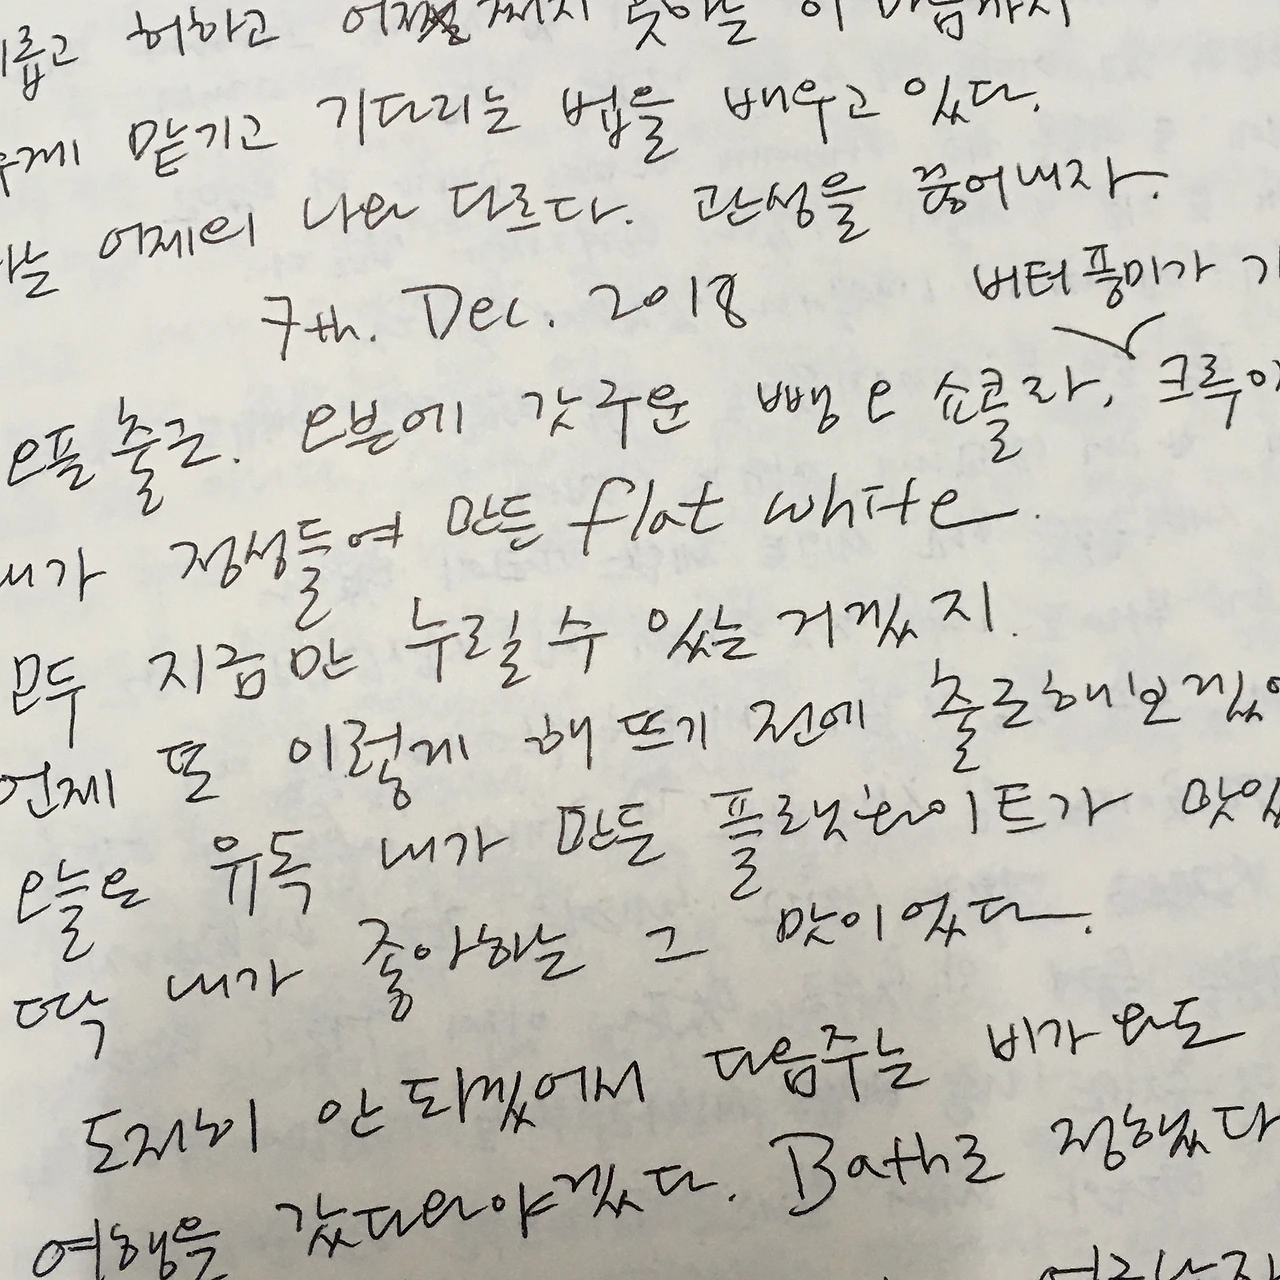 허하고 못하는 이 마음까지
맡기고 기다리는 법을 배우고 있다.
어제의 나와 다르다. 관성을 끊어내자.
7th. Dec. 2018
버터풍미가
오픈출근. 오븐에 갓구운 뺑오쇼콜라,
내가 정성들여 만든 flat white.
모두 지금만 누릴 수 있는 거겠지.
언제 또 이렇게 해뜨기 전에 출근해보겠어
오늘은 유독 내가 만든 플랫화이트가
딱 내가 좋아하는 그 맛이었다.
도저히 안되겠어서 다음주는 비가와도
여행을 갔다와야겠다. Bath로 정했다